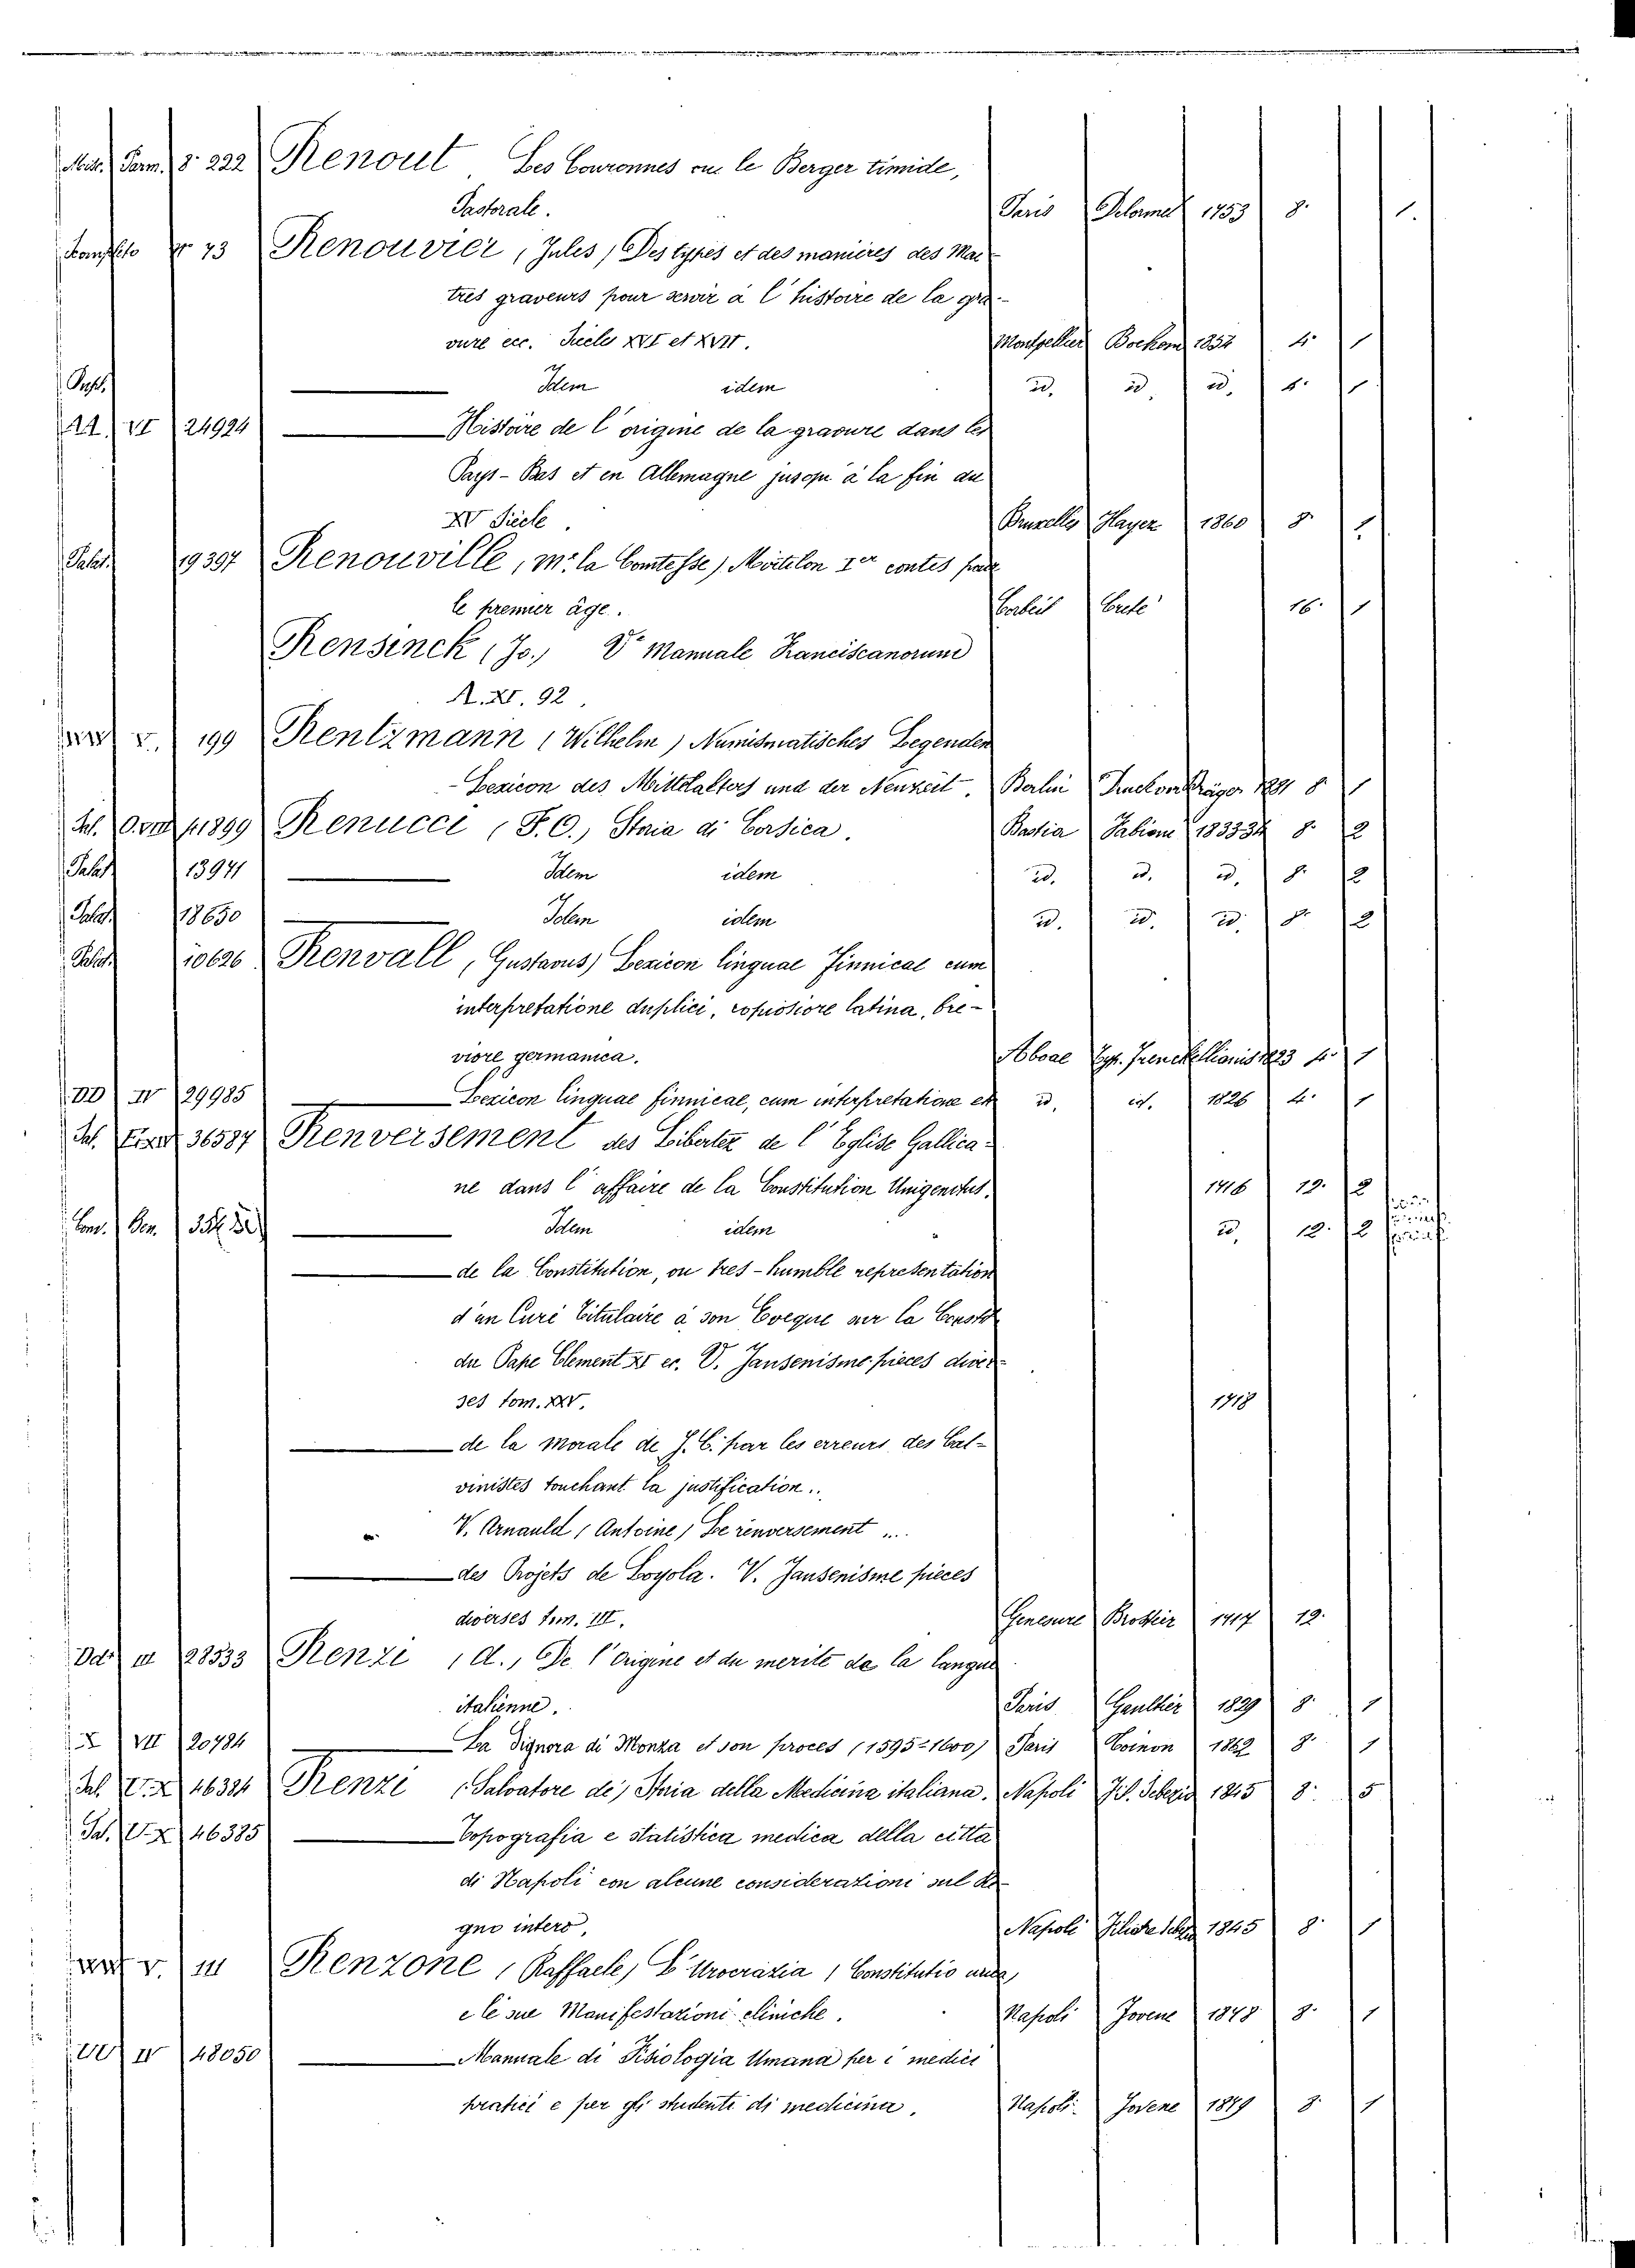 Misc. Parm. 8. 222 Renout Les Couronnes ou le Berger timide,
Pastorale. Paris Delormel 1753 8. 1.
73 Renouvier, Jules) Des types et des manières des Mai-
tres graveurs pour servir à l'histoire de la gra-
vure ecc. Siecles XVI et XVII. Montpellier Boehem 1852 4. 1
Idem idem id. id. id. 4. 1
VI 24924 Histoire de l'origine de la gravure dans les
Pays-Bas et en Allemagne jusqu'à la fin du
XV Siècle. Bruxelles Hayez 1860 8. 1
Palat. 19397 Renouville, Me la Comtesse) contes pour
le premier âge. Corbeil Crete' 16. 1
Rensinck (Jo.) V. Manuale Franciscanorum
A. XI. 92.
V. 199 Rentzmann (Wilhelm) Numismatisches Legenden
-Lexicon des Mittelalters und der Neuzeit. Berlin 8 1
11899 Renucci (F. O.) Storia di Corsica. Bastia Fabiani 1833 34 8. 2
Palat. 13971 Idem idem id. id. id. 8. 2
Palat. 18650 Idem idem id. id. id. 8. 2
Palat. 10626 Renvall, Gustavus) Lexicon linguae Finnicae cum
interpretatione duplici, copiosiore latina, bre-
viore germanica. Aboae Typ. Frenckellianis 1823 4. 1
DD IV 29985 Lexicon linguae finnicae, cum interpretatione et id. id. 1826 4. 1
36587 Renversement des Libertez de l'Eglise Gallica-
ne dans l'affaire de la Constitution Unigenitus. 1716 12. 2
Idem idem id. 12. 2
de la Constitution, ou tres-humble representation
d'un Curé titulaire à son Eveque sur la Const.
du Pape Clement XI ec. V. Jansenisme pieces diver-
ses tom. XXV. 1718
de la Morale de J. C. par les erreurs des Cal-
vinistes touchant la justification..
V. Arnauld (Antoine) Le renversement ...
des Projets de Loyola. V. Jansenisme pièces
diverses tom. III. 1717 12.
III 28533 Renzi (A.) De l'Origine et du merite de la langue
italienne. Paris Gaultier 1829 8. 1
X VII 20784 La Signora di Monza et son procès (1595-1600) Paris Coinon 1862 8. 1
46384 Renzi (Salvatore de) Storia della Medicina italiana. Napoli Fil. Sebezio 1845 8. 5
46385 Topografia e statistica medica della citta
di Napoli con alcune considerazioni sul Re-
gno intero. Napoli 1845 8. 1
V. III Renzone (Raffaele) L'Urocrazia (Constitutio urica)
e le sue Manifestazioni cliniche. Napoli Jovene 1878 8. 1
IV 48050 Manuale di Fisiologia Umana per i medici
pratici e per gli studenti di medicina. Napoli. Jovene 1879 8. 1